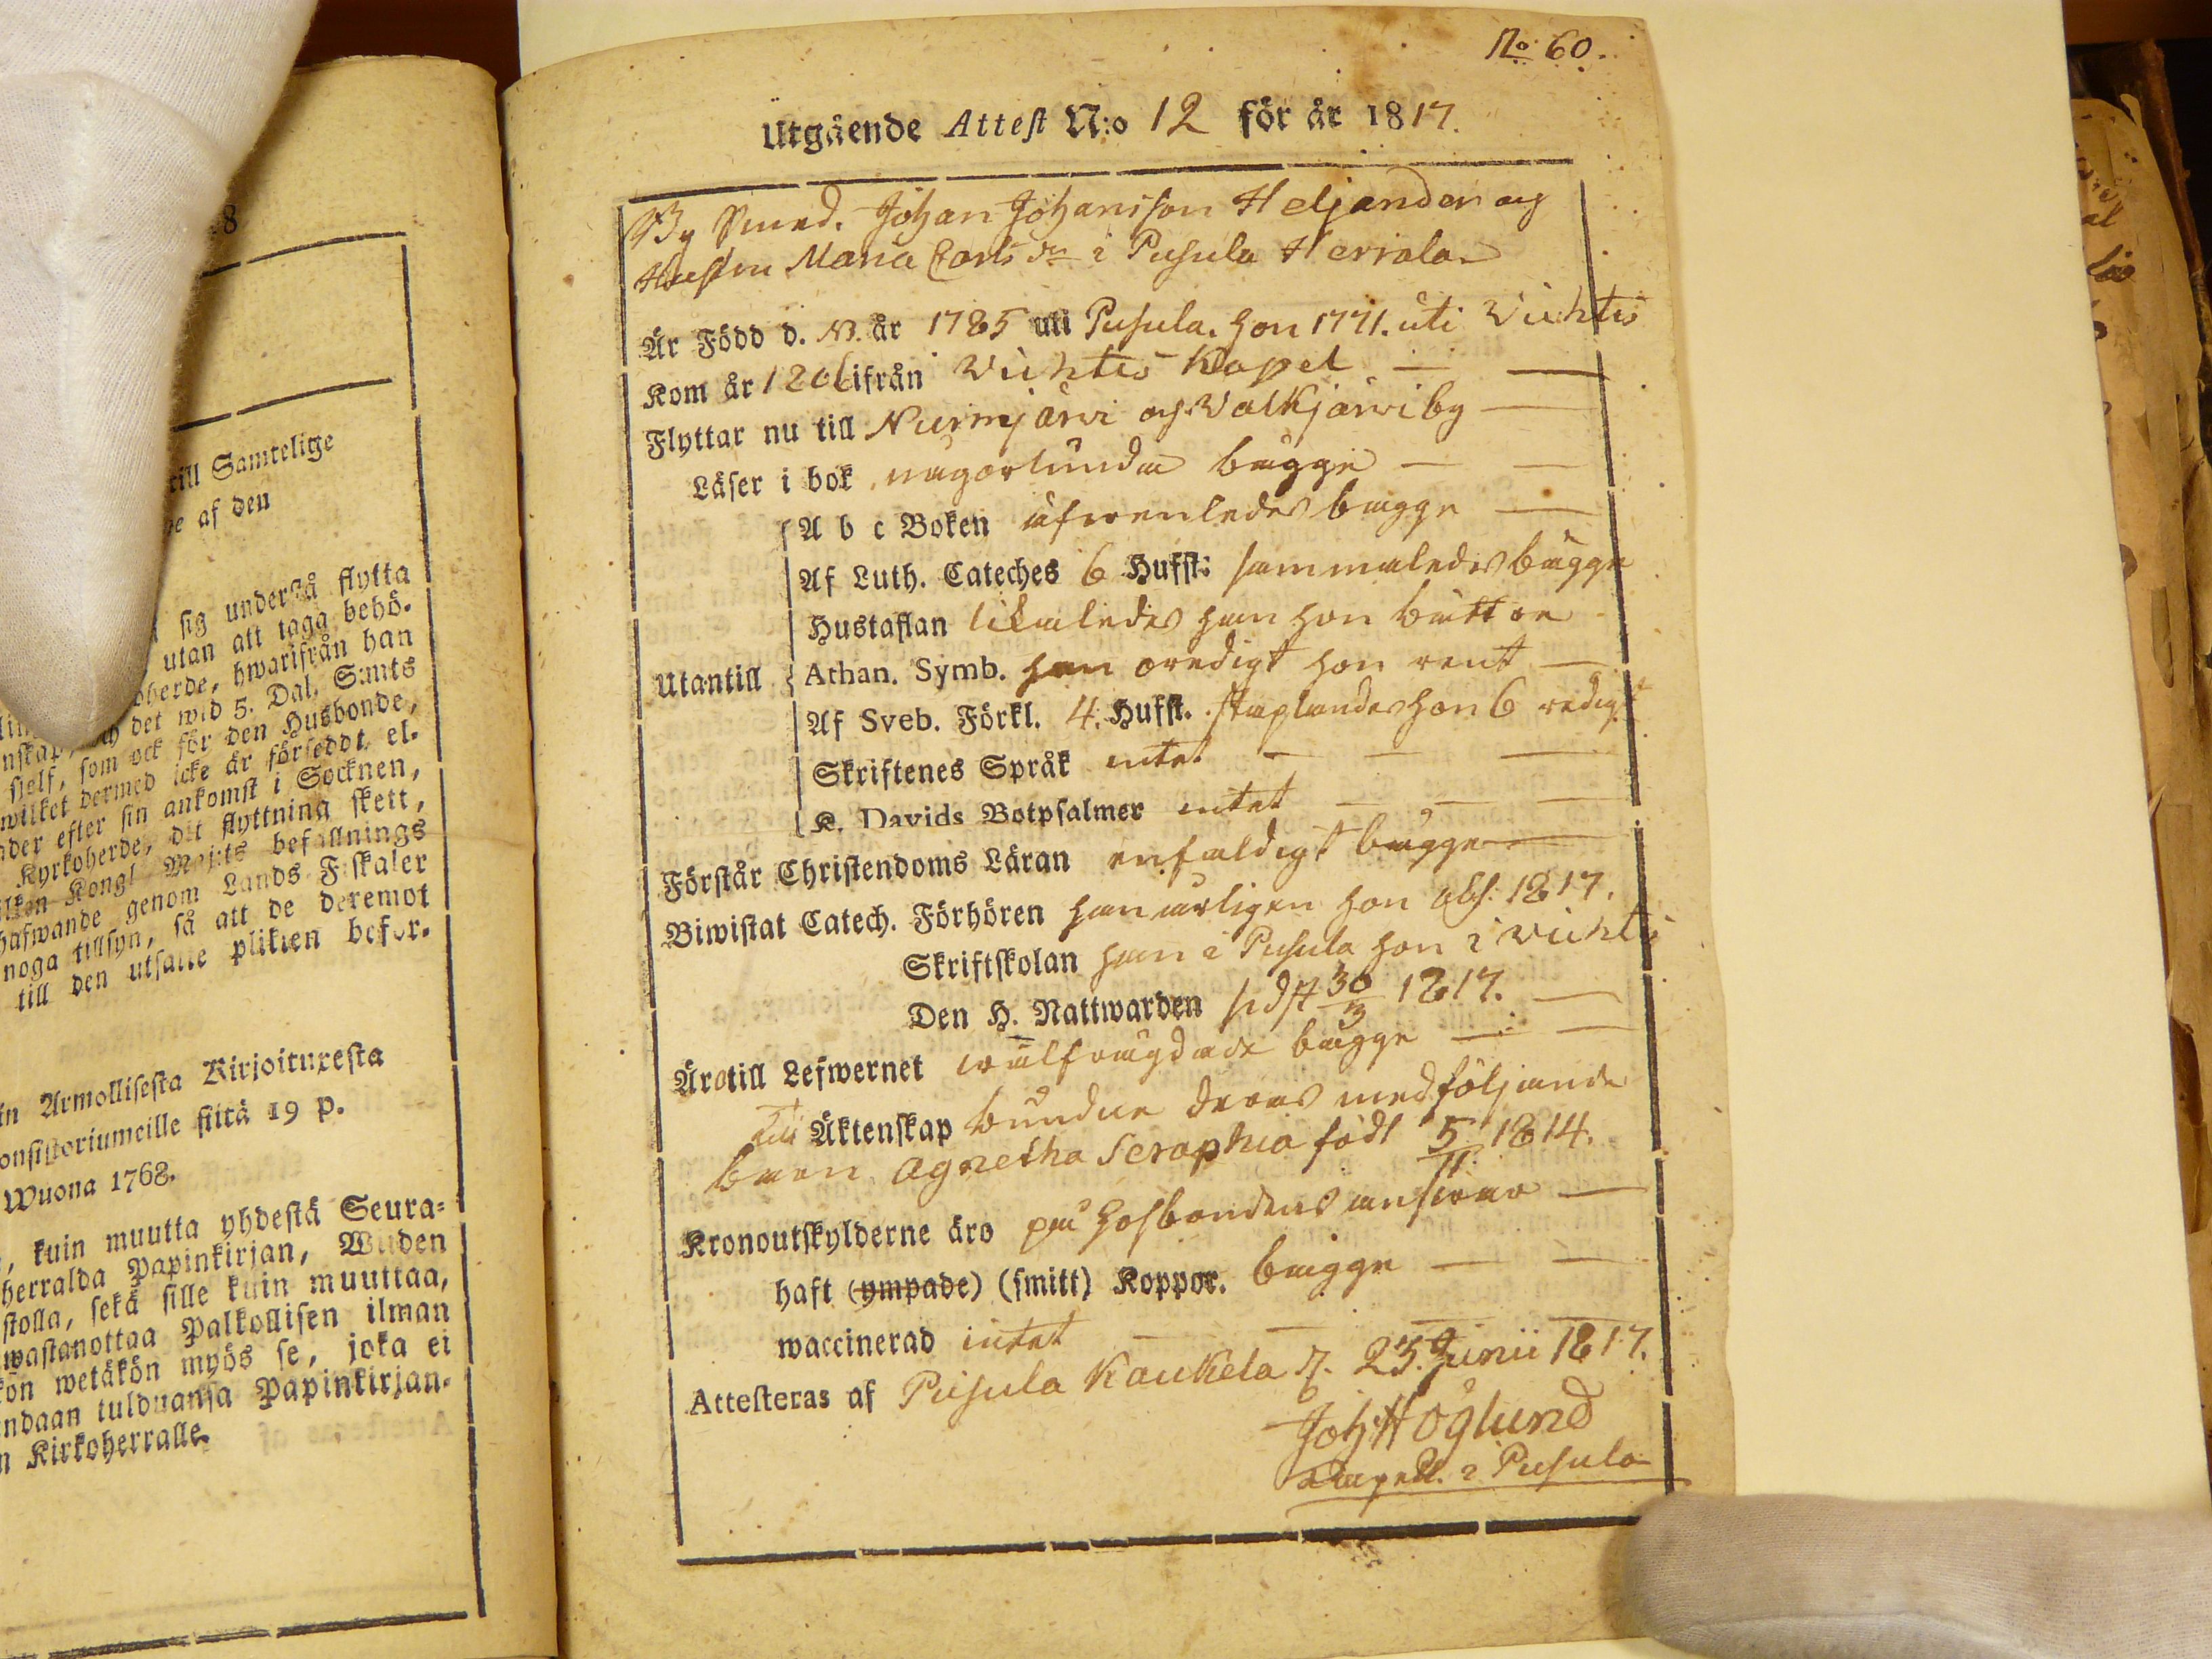 No 60.
Utgående Attest N:o 12 för år 1817.
By Smed. Johan Johansson Heljander och
Hustru Maria Carlsdr i Pusula Herrala
Är Född d. år 1785 uti Pusula. hon 1771. uti Vichtis
Kom år 1806 ifrån Vichtis Kapel
Flyttar nu till Nurmjärvi och Valkjärvi by
Läser i bok någorlunda bägge
A b c Boken äfvenledes bägge
Af Luth. Cateches 6 Hufst: sammaledes bägge
Hustaflan likaledes han hon bättre
Utantill Athan. Symb. han oredigt hon rent
Af Sveb. Förkl. 4. Hufst. staplandes hon 6 redigt
Skriftenes Språk intet
K. Davids Botpsalmer intet
Förstår Christendoms Läran enfaldigt bägge
Biwistat Catech. Förhören han årligen hon abs. 1817.
Skriftskolan han i Pusula hon i Vichtis
Den H. Nattwarden sidst 30/3 1817.
Äro till Lefwernet wälfrägdade bägge
Till Äktenskap bundne deras medföljande
barn Agnetha Seraphia född 5/11 1814.
Kronoutskylderne äro på Hosbondens answar
haft (ympade) (smitt) Koppor. bägge
waccinerad intet
Attesteras af Pusula Kaukela d. 23. Junii 1817.
Joh. Höglund
Capell. i Pusula
8
till Samtelige
af den
sig understå flytta
utan att taga behö-
oherde, hwarifrån han
det wid 5. Dal. S:mts
sjelf, som ock för den Husbonde,
wilket dermed icke är förseddt, el-
der efter sin ankomst i Socknen,
Kyrkoherde, dit flyttning skett,
Kongl Maj:ts befallnings
hafwande genom Lands Fiskaler
noga tillsyn, så att de deremot
till den utsatte plikten befor-
in Armollisesta Kirjoituxesta
onsistoriumeille siitä 19 p.
Wuona 1768.
, kuin muutta yhdestä Seura-
herralda Papinkirjan, Wiiden
stolla, sekä sille kuin muuttaa,
wastanottaa Palkollisen ilman
kön wetäkön myös se, joka ei
ndaan tulduansa Papinkirjan-
n Kirkoherralle.